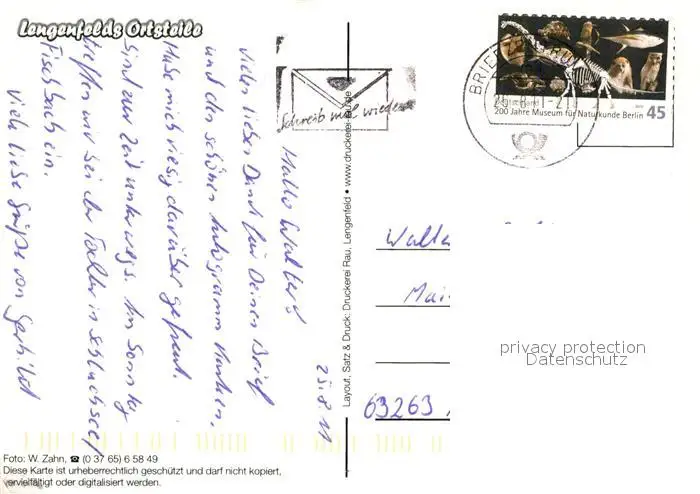 Lengenfelds Ortsteile
25.8.11
Hallo Walter
vielen lieben Dank für Deinen Brief
und den schönen Autogramm Karten.
Habe mich riesig darüber gefreut.
Sind zur Zeit unterwegs. Am Sonntag
treffen wir bei der Tochter in Schluchsee/
Fischbach ein.
Viele liebe Grüße von
Schreib mal wieder
BRIEF
Deutschland
200 Jahre Museum für Naturkunde Berlin 45
Layout, Satz & Druck: Druckerei Rau, Lengenfeld • www.druckerei
privacy protection
Datenschutz
63263
Foto: W. Zahn, ☎ (0 37 65) 6 58 49
Diese Karte ist urheberrechtlich geschützt und darf nicht kopiert,
vervielfältigt oder digitalisiert werden.